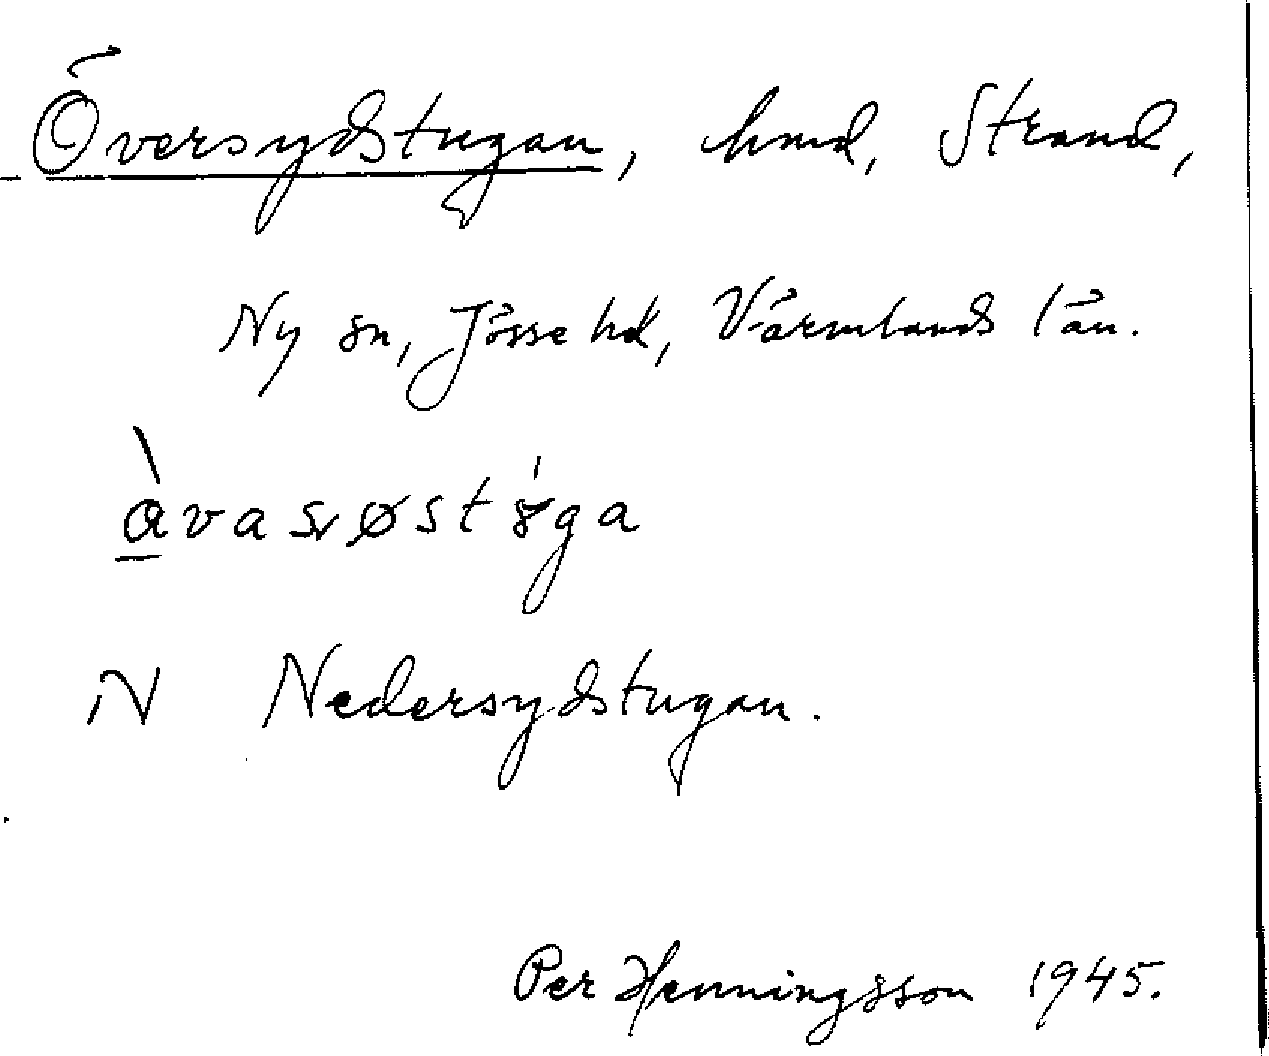 Översydstugan, hmd, Strand,
Ny sn, Jösse hd, Värmlands län.
N Nedersydstugan.
Per Henningsson 1945.